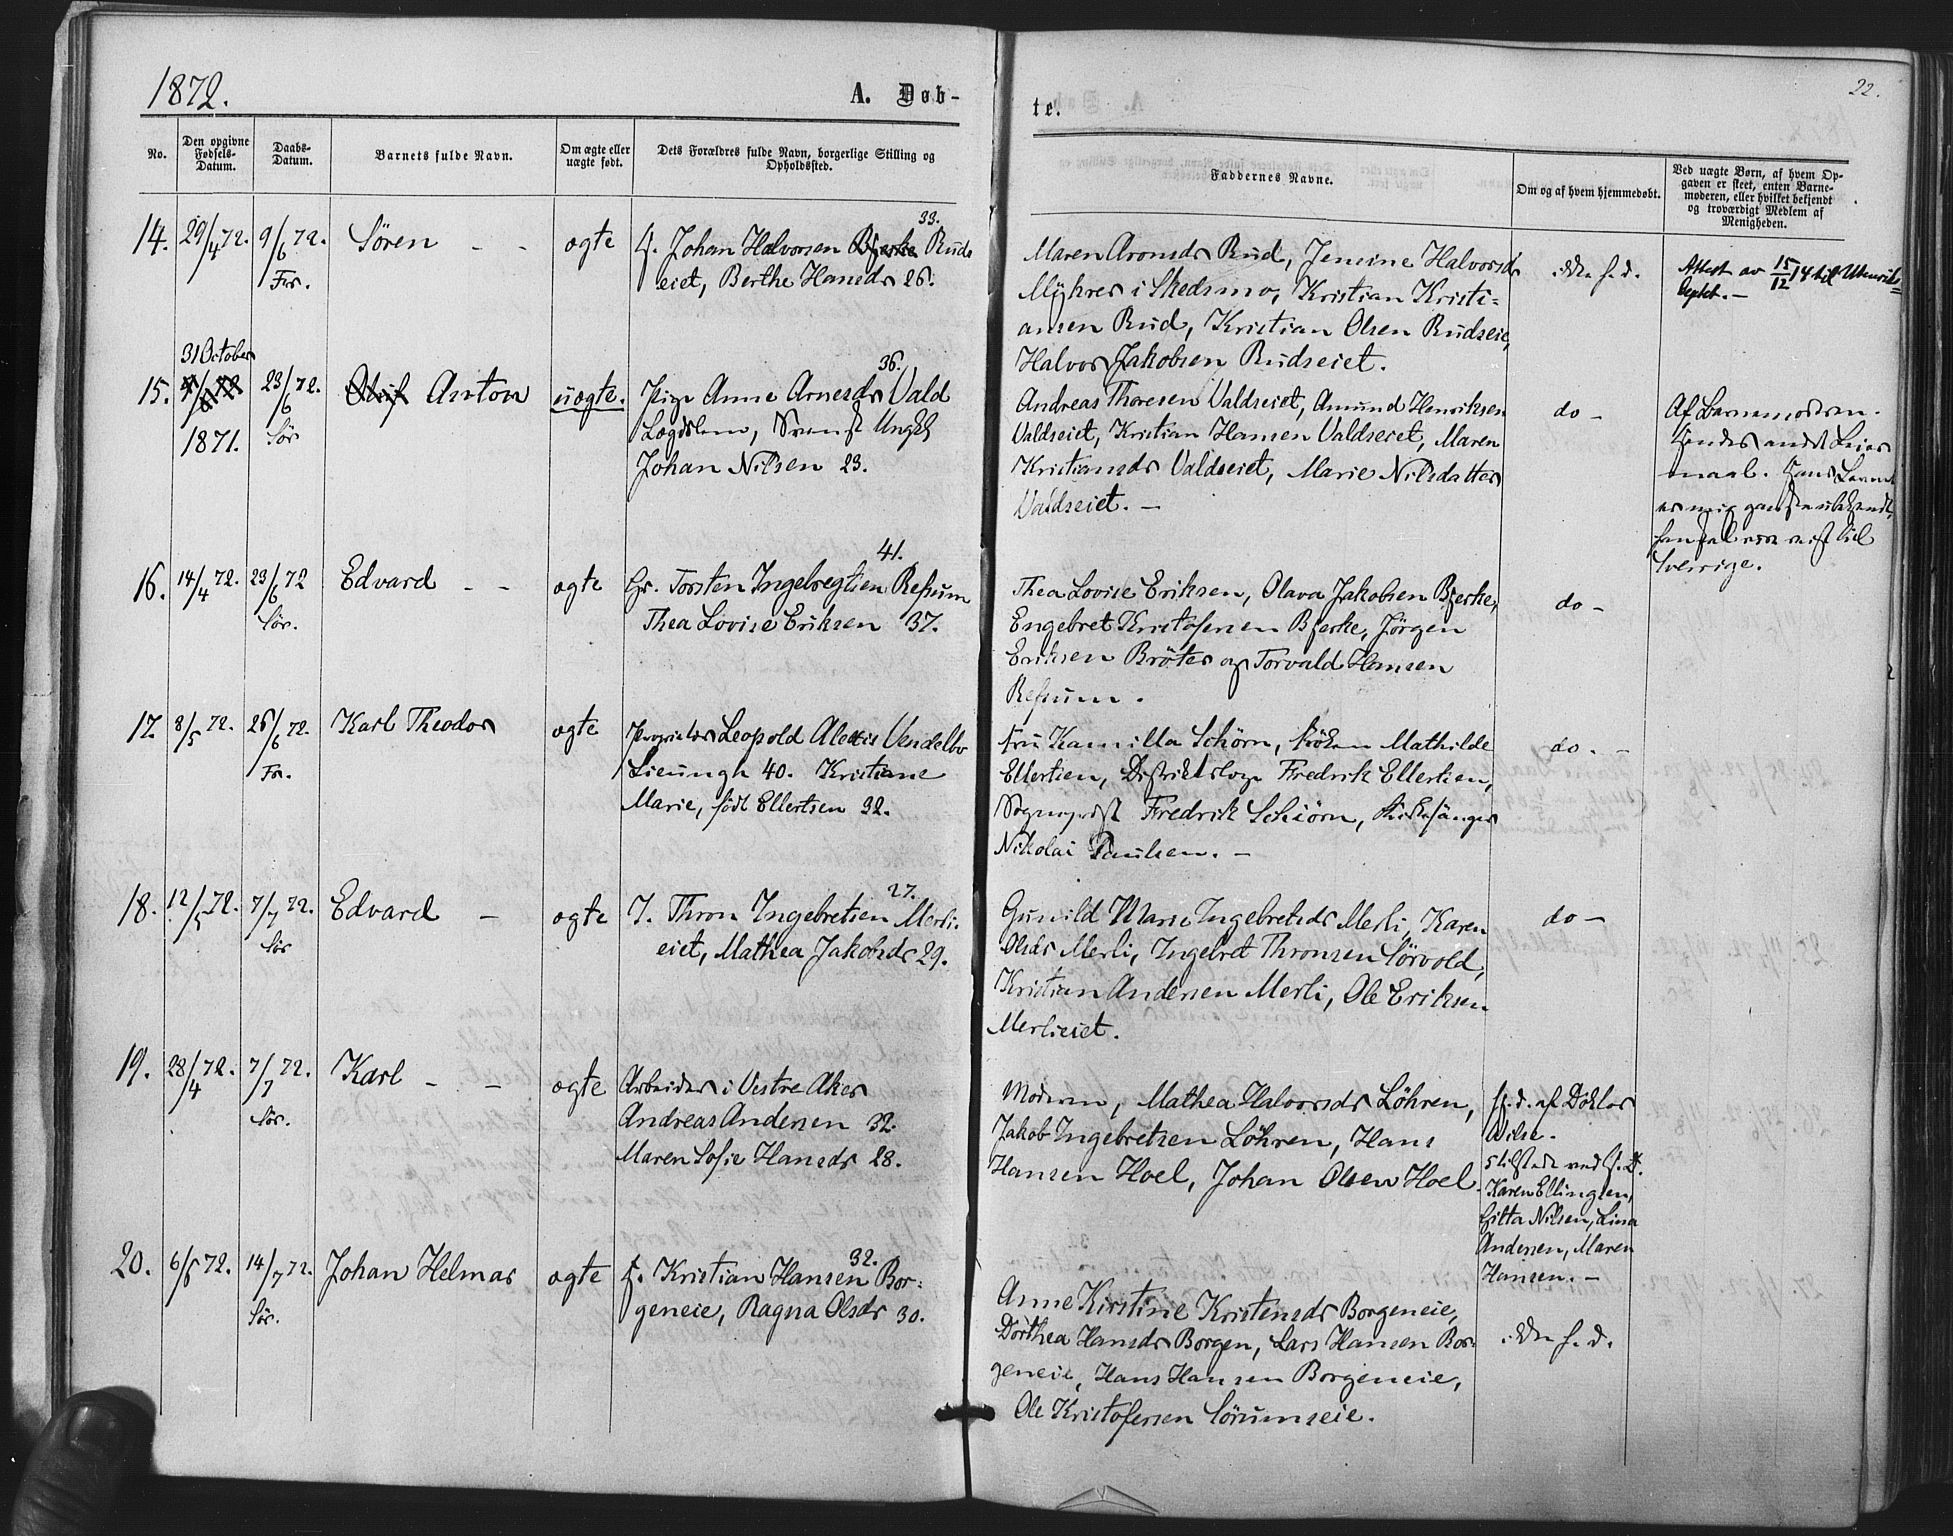 1872.
A. Døb-
te.
22.
No.
Den opgivne Fødsels-Datum.
Daabs-Datum.
Barnets fulde Navn.
Om ægte eller uægte født.
Dets Forældres fulde Navn, borgerlige Stilling og Opholdssted.
Faddernes Navne.
Om og af hvem hjemmedøbt.
Ved uægte Børn, af hvem Opgaven er skeet, enten Barnemoderen, eller hvilket bekjendt og troværdigt Medlem af Menigheden.
14. 29/4 72. 9/6 72. Fr. Sören - - ægte
33.
G. Johan Halvorsen Bjerke Ruds
eiet, Berthe Hansds 26.
Maren Aronsds Rud, Jensine Halvorsds
Myhrer i Skedsmo, Kristian Kristi=
ansen Rud, Kristian Olsen Rudseie,
Halvor Jakobsen Rudseiet.
ikke h. d.
Attest av 15/12 14 til Utenriks=
deptet. -
15. 31 October 1871. 23/6 72. Sør Oluf Anton uægte.
36.
Pige Anne Arnesds Vald
Johan Nilsen 23.
Andreas Thoresen Valdseiet, Amund Henriksen
Valdseiet, Kristian Hansen Valdseiet, Maren
Kristiansds Valdseiet, Marie Nilsdatter
Valdseiet. -
do -
Af Barnemoderen.
Hendes andet Leier
maal. Hans
er mig ganske ubekjendt,
reist til
Sverrige.
16. 14/4 72. 23/6 72 Sør. Edvard - - ægte
41.
Gr. Torsten Ingebregtsen Refsum
Thea Lovise Eriksen 37.
Thea Lovise Eriksen, Olava Jakobsen Bjerke,
Engebret Kristofersen Bjerke, Jörgen
Eriksen Bröter og Torvald Hansen
Refsum.
do -
17. 8/5 72. 26/6 72. Fr. Karl Theodor ægte
Proprietær Leopold Alexis Vendelbo
Lieungh 40. Kristiane
Marie, född Ellertsen 32.
Fru Kamilla Schörn, Fröken Mathilde
Ellertsen, Distriktslæge Fredrik Ellertsen,
Sogneprest Fredrik Schiörn, Kirkesanger
Nikolai Paulsen. -
do. -
18. 12/5 72. 7/7 72. Sør Edvard - ægte
27.
J. Thron Ingebretsen Merli-
eiet, Mathea Jakobsds 29.
Gunild Marie Ingebretsds Merli, Karen
Olsds Merli, Ingebret Thronsen Sörvold,
Kristian Andersen Merli, Ole Eriksen
Merlieiet.
do -
19. 28/4 72. 7/7 72. Sør. Karl - - ægte
Arbeider i Vestre Aker
Andreas Andersen 32.
Maren Sofie Hansds 28.
Moderen, Mathea Halvorsds Löhren,
Jakob Ingebretsen Löhren, Hans
Hansen Hoel, Johan Olsen Hoel
hj. d. af Doktor
Wilse.
tilstede ved h. d.
Karen Ellingsen,
Gitta Nilsen, Lina
Andersen, Maren
Hansen. -
20. 6/5 72. 14/7 72. Sør. Johan Helmar ægte
32.
f. Kristian Hansen Bor=
geneie, Ragna Olsds 30.
Anne Kirstine Kristensds Borgeneie,
Dorthea Hansds Borgen, Lars Hansen Bor=
geneie, Hans Hansen Borgeneie,
Ole Kristofersen Sörumseie.
ikke h. d.